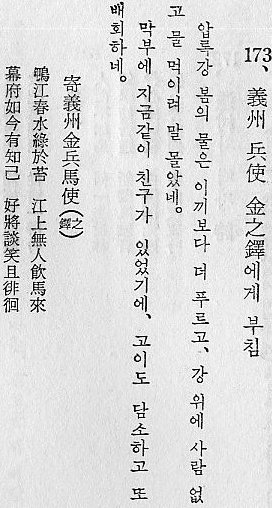 173、義州 兵使 金之鐸에게 부침
압록강 봄의 물은 이끼보다 더 푸르고、강 위에 사람 없
고 물 먹이려 말 몰았네。
막부에 지금같이 친구가 있었기에、고이도 담소하고 또
배회하네。
寄義州金兵馬使(之鐸)
鴨江春水綠於苔 江上無人飮馬來
幕府如今有知己 好將談笑且徘徊